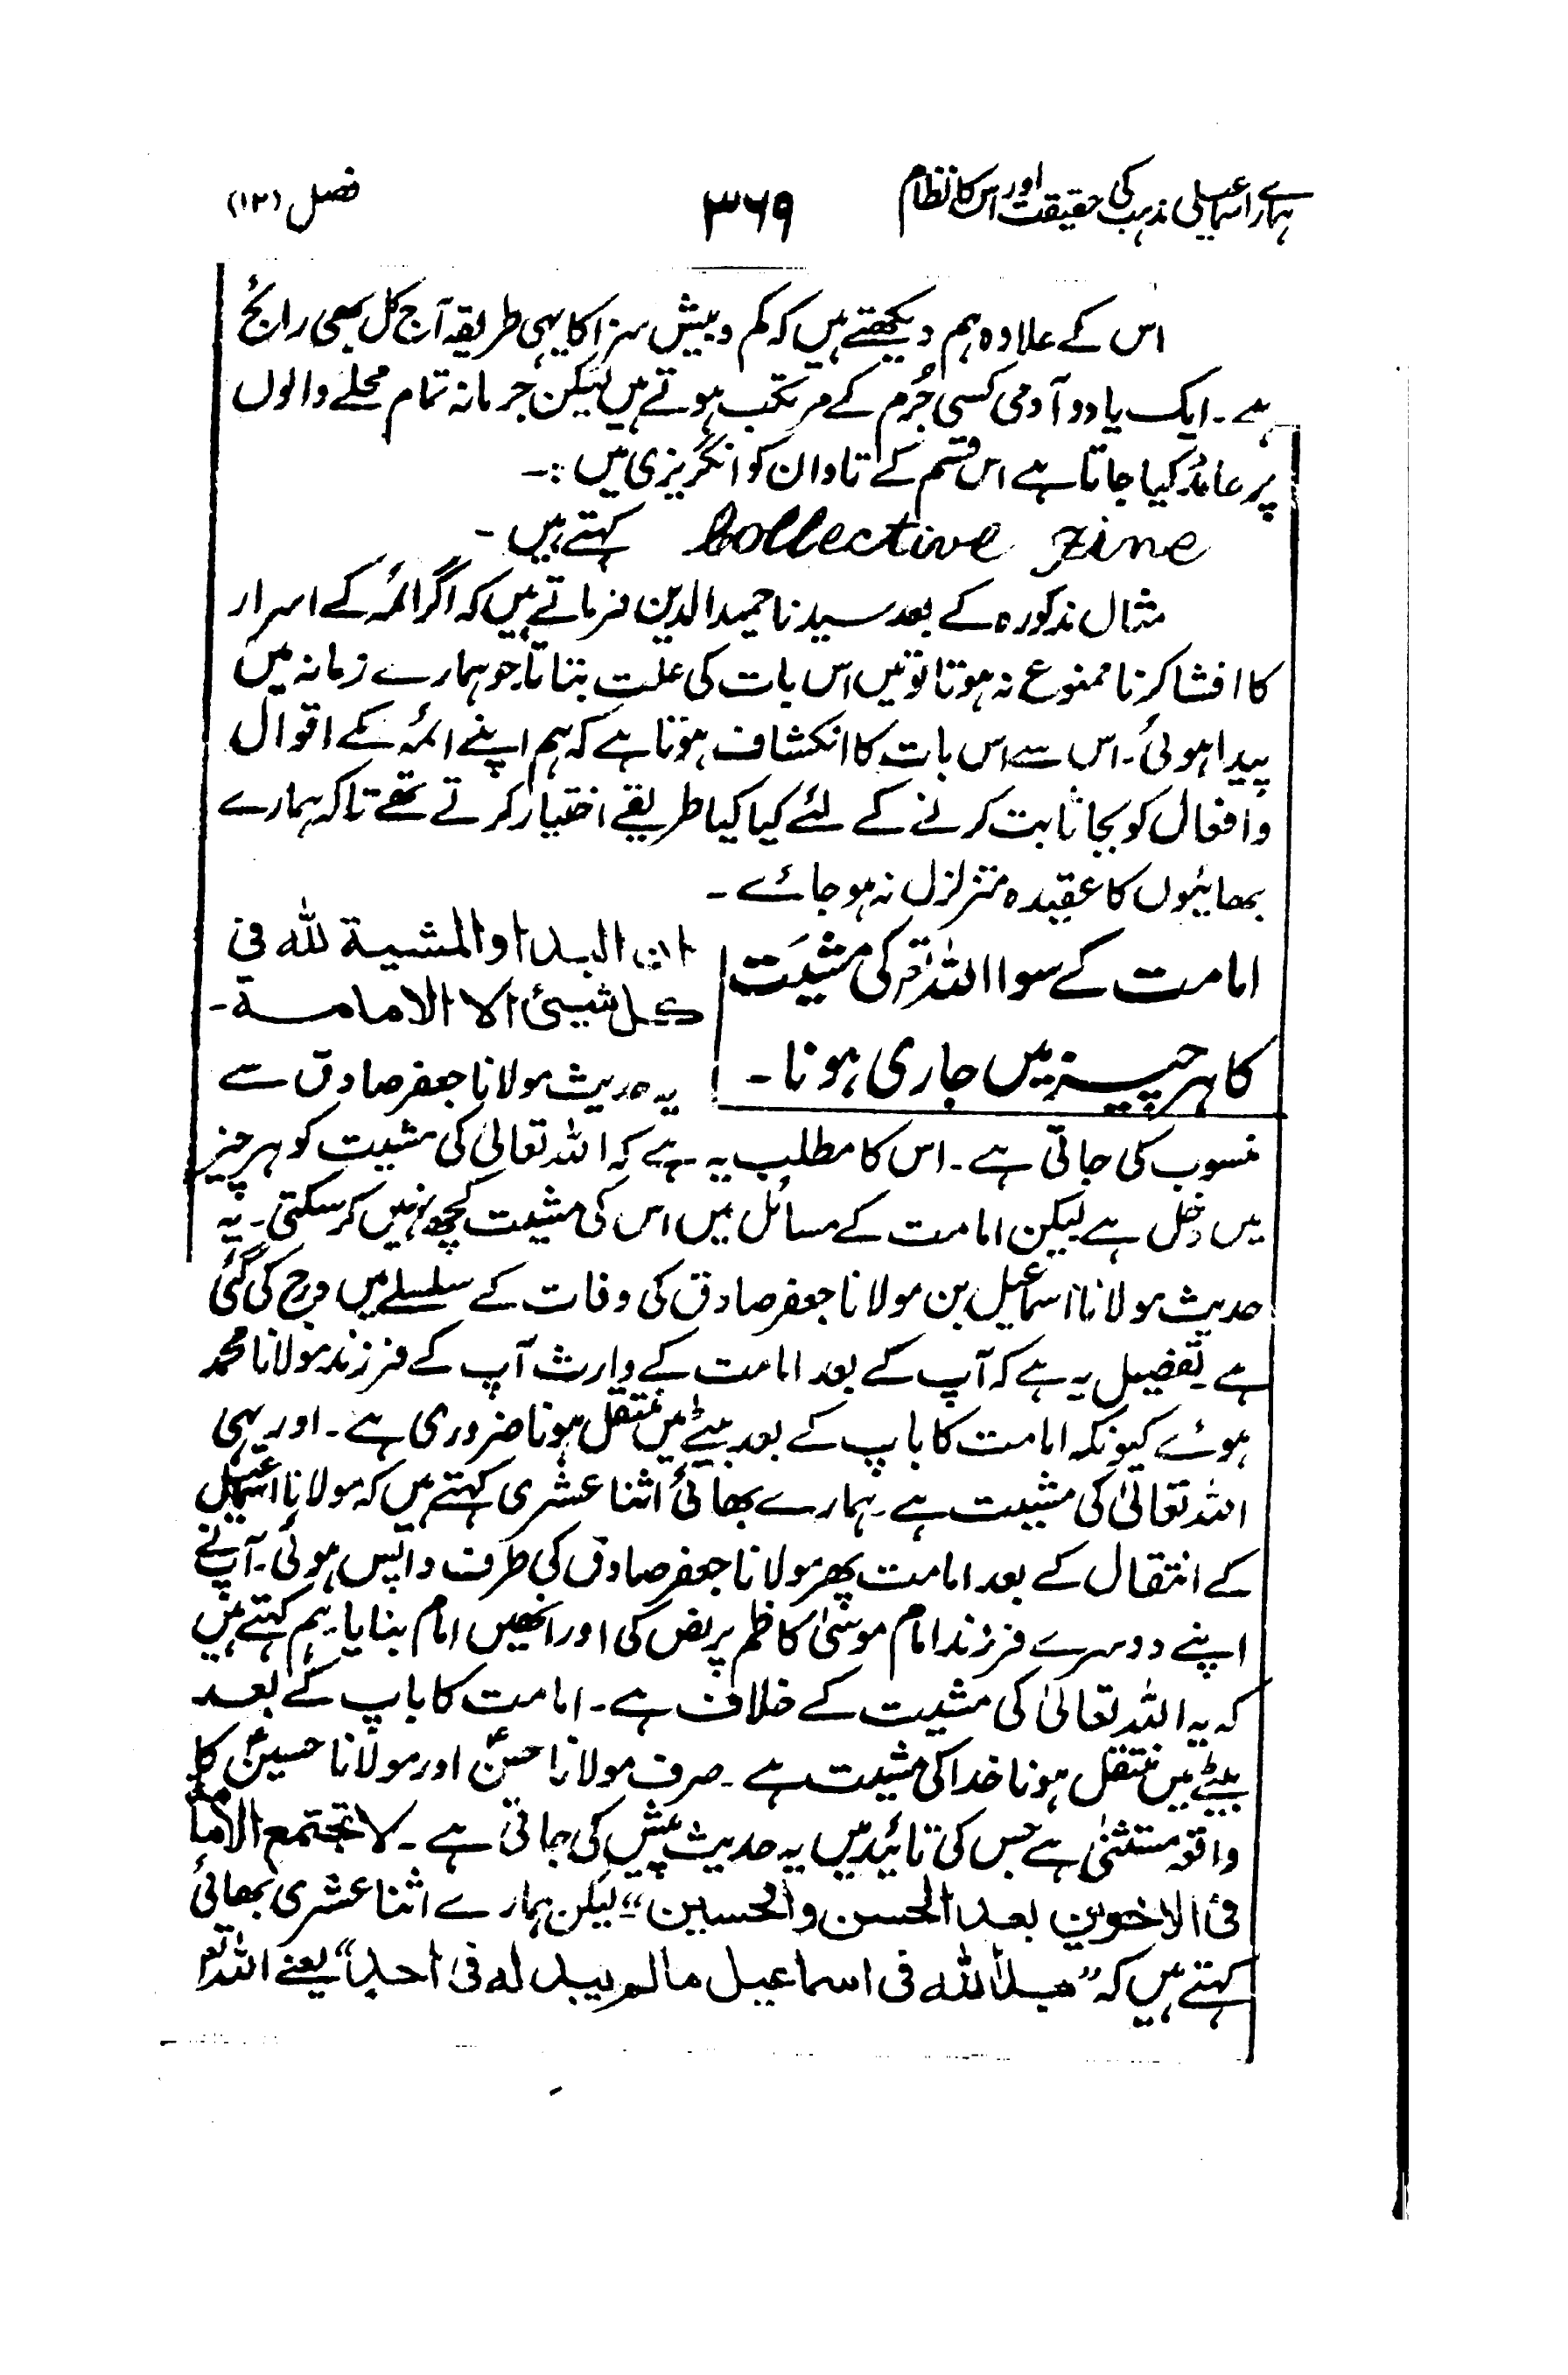 ہمارے اسماعیلی مذہب کی حقیقت اور اس کا نظام ۳۶۹ فصل (۱۲)
اس کے علاوہ ہم دیکھتے ہیں کہ کم و بیش سزا کا یہی طریقہ آج کل بھی رائج
ہے۔ ایک یا دو آدمی کسی جُرم کے مرتکب ہوتے ہیں لیکن جرمانہ تمام محلے والوں
پر عائد کیا جاتا ہے اس قسم کے تاوان کو انگریزی میں :۔
Collective Fine کہتے ہیں ۔
مثال مذکورہ کے بعد سیدنا حمید الدین فرماتے ہیں کہ اگر ائمہ کے اسرار
کا افشا کرنا ممنوع نہ ہوتا تو میں اس بات کی علت بتاتا جو ہمارے زمانہ میں
پیدا ہوئی۔ اس سے اس بات کا انکشاف ہوتا ہے کہ ہم اپنے ائمہ کے اقوال
و افعال کو بجا ثابت کرنے کے لئے کیا کیا طریقے اختیار کرتے تھے تاکہ ہمارے
بھائیوں کا عقیدہ متزلزل نہ ہو جائے ۔
امامت کے سوا اللہ تعہ کی مشیَت
کا ہر چیز میں جاری ہونا ۔
ان البدا و المشیة للہ فی
کل شیئ الا الامامة ۔
یہ حدیث مولانا جعفر صادق سے
منسوب کی جاتی ہے ۔ اس کا مطلب یہ ہے کہ اللہ تعالیٰ کی مشیت کو ہر چیز
میں دخل ہے لیکن امامت کے مسائل میں اس کی مشیت کچھ نہیں کر سکتی۔ یہ
حدیث مولانا اسماعیل بن مولانا جعفر صادق کی وفات کے سلسلے میں درج کی گئی
ہے تفصیل یہ ہے کہ آپ کے بعد امامت کے وارث آپ کے فرزند مولانا محمد
ہوئے کیونکہ امامت کا باپ کے بعد بیٹے میں منتقل ہونا ضروری ہے ۔ اور یہی
اللہ تعالیٰ کی مشیت ہے ۔ ہمارے بھائی اثنا عشری کہتے ہیں کہ مولانا اسماعیل
کے انتقال کے بعد امامت پھر مولانا جعفر صادق کی طرف واپس ہوئی ۔ آپنے
اپنے دوسرے فرزند امام موسیٰ کاظم پر نص کی اور انھیں امام بنایا ۔ ہم کہتے ہیں
کہ یہ اللہ تعالیٰ کی مشیت کے خلاف ہے ۔ امامت کا باپ کے بعد
بیٹے میں منتقل ہونا خدا کی مشیت ہے ۔ صرف مولانا حسنؑ اور مولانا حسینؑ کا
واقعہ مستثنیٰ ہے جس کی تائید میں یہ حدیث پیش کی جاتی ہے ۔ لا تجتمع الامامة
فی الاخوین بعد الحسن و الحسین“ لیکن ہمارے اثنا عشری بھائی
کہتے ہیں کہ ”بدا للہ فی اسماعیل مالم یبد لہ فی احد“ یعنے اللہ تعہ